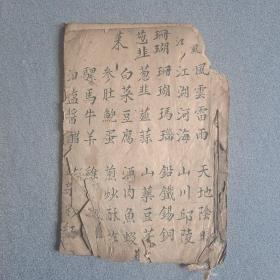 風
風雲雷雨 天地陰
江
江湖河海 山川邱陵
珊瑚
珊瑚瑪瑙 鉛鐵錫銅
葱韭
葱韭薑蒜 山藥豆
白菜豆腐 酒肉魚蝦
参肚鮑蛋 煎炒酥
騾馬牛羊 雞
油鹽醬醋